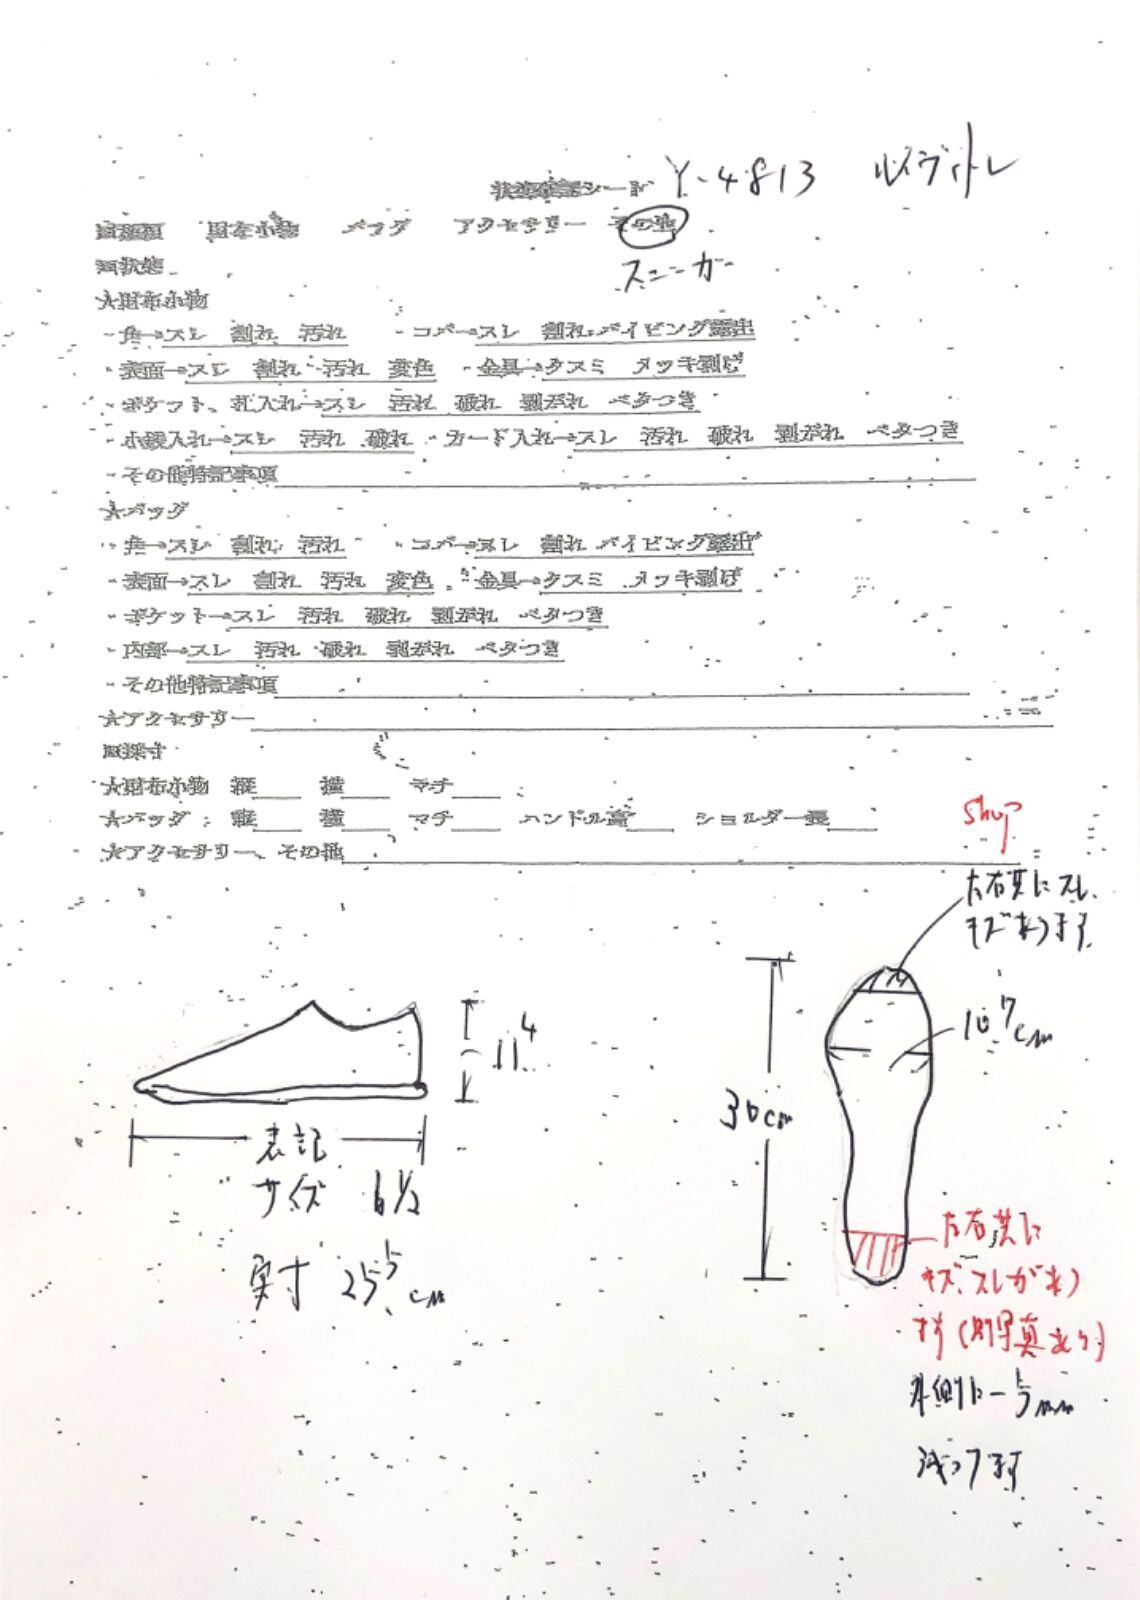 状態確認シート Y-4813 ルイヴィトン
財布小物 バッグ アクセサリー その他
スニーカー
□状態
★財布小物
・角→スレ 割れ 汚れ ・コバ→スレ 割れ パイピング露出
・表面→スレ 割れ 汚れ 変色 ・金具→クスミ メッキ剥げ
・ポケット、札入れ→スレ 汚れ 破れ 剥がれ ベタつき
・小銭入れ→スレ 汚れ 破れ ・カード入れ→スレ 汚れ 破れ 剥がれ ベタつき
・その他特記事項
★バッグ
・角→スレ 割れ 汚れ ・コバ→スレ 割れ パイピング露出
・表面→スレ 割れ 汚れ 変色 ・金具→クスミ メッキ剥げ
・ポケット→スレ 汚れ 破れ 剥がれ ベタつき
・内部→スレ 汚れ 破れ 剥がれ ベタつき
・その他特記事項
★アクセサリー
□採寸
★財布小物 縦 横 マチ
★バッグ 縦 横 マチ ハンドル高 ショルダー長
★アクセサリー、その他
shop
左右共にスレ、
キズあります
11.4
表記
サイズ 6 1/2
実寸 25.5cm
10.7cm
30cm
左右共に
キズ、スレがあり
ます(別写真あり)
外側に-5mm
減ってます